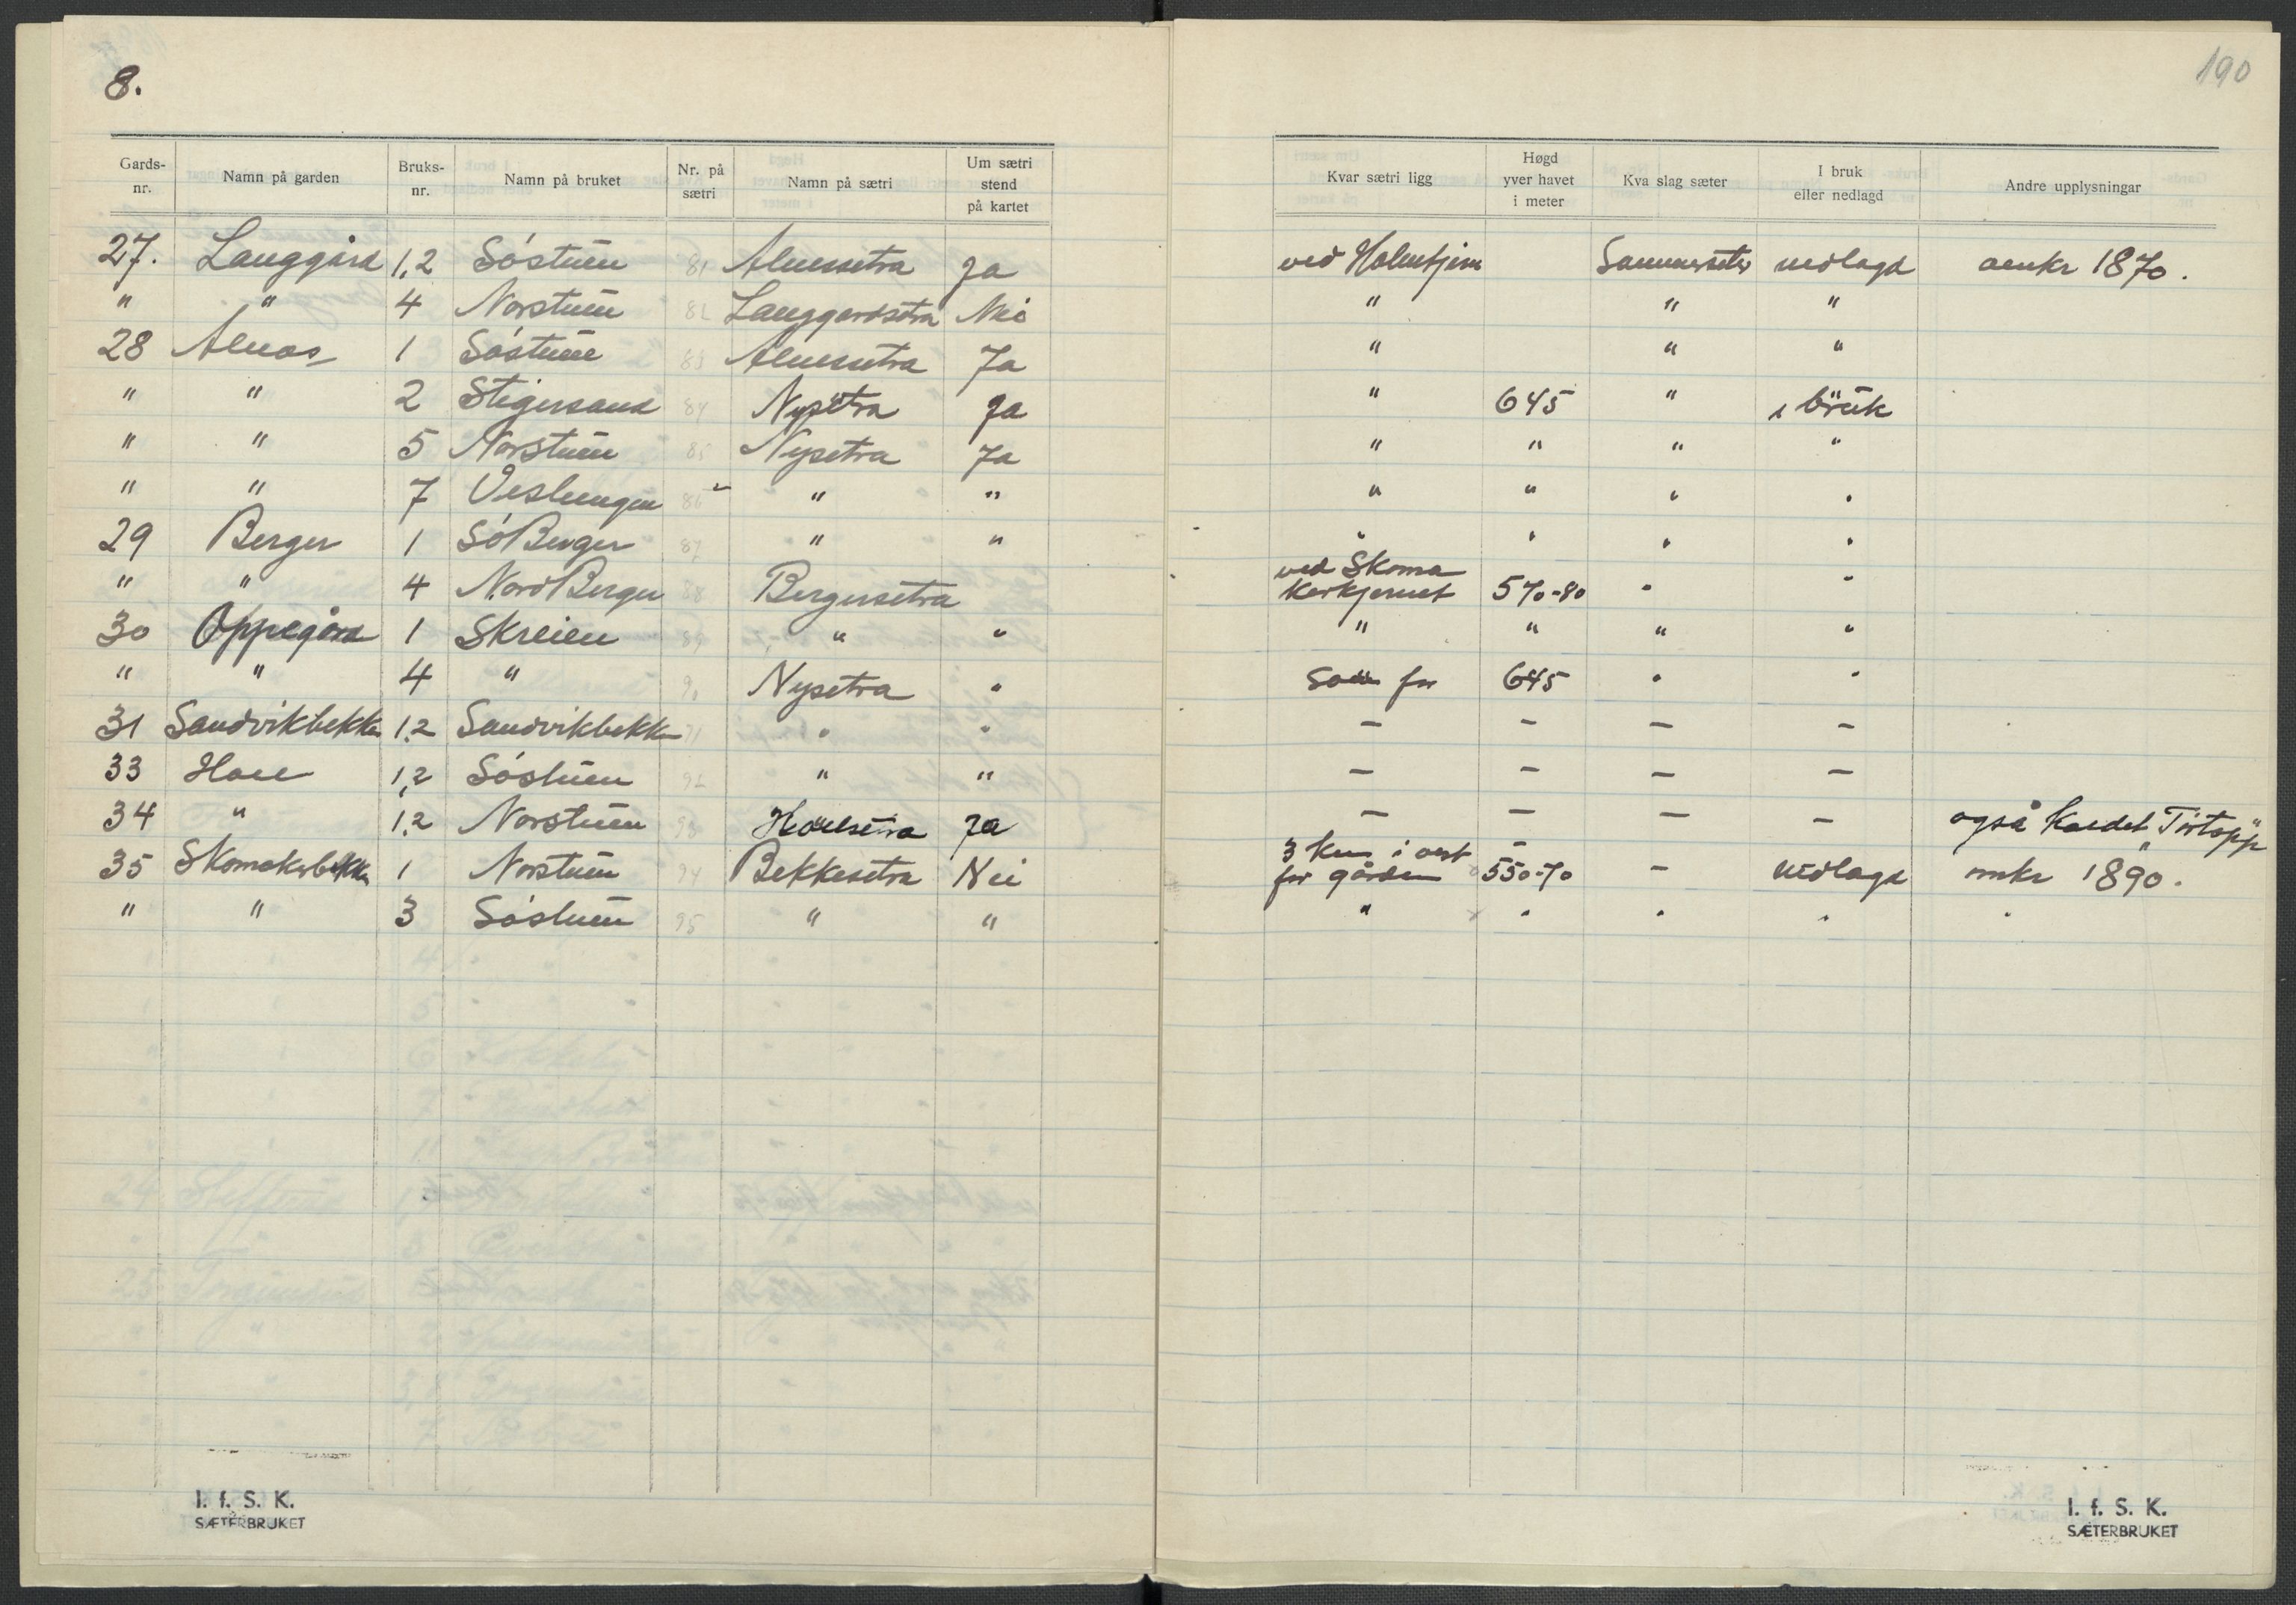 8.
190
Gards-nr. Namn på garden Bruks-nr. Namn på bruket Nr. på sætri Namn på sætri Um sætri stend på kartet Kvar sætri ligg Høgd yver havet i meter Kva slag sæter I bruk eller nedlagd Andre upplysningar
27. Langgård 1,2 Søstuen 81 Alnessetra Ja ved Holmtjern Sommerseter nedlagd omkr 1870.
" " 4 Norstuen 82 Langgardsetra Nei " " "
28 Alnes 1 Søstuen 83 Alnessetra Ja " " "
" " 2 Stigersand 84 Nysetra Ja " 645 " i bruk
" " 5 Norstuen 85 Nysetra Ja " " " "
" " 7 Veslengen 86 " " " " " "
29 Berger 1 Sø Berger 87 " " " " " "
" " 4 Nord Berger 88 Bergersetra ved Skoma
kerkjernet 570-80 " "
30 Oppegård 1 Skreien 89 " " " " " "
" " 4 " 90 Nysetra " 645 " "
31 Sandvikbekken 1,2 Sandvikbekken 91 " " – – – –
33 Hoel 1,2 Søstuen 92 " " – – – –
34 " 1,2 Norstuen 93 Hoelsetra Ja – – – – også kaldet "Törtopp"
35 Skomakerbekken 1 Norstuen 94 Bekkesetra Nei 3 km i vest
for gården 550-70 – nedlagd omkr 1890.
" " 3 Søstuen 95 " " " " " " "
I. f. S. K.
SÆTERBRUKET
I. f. S. K.
SÆTERBRUKET